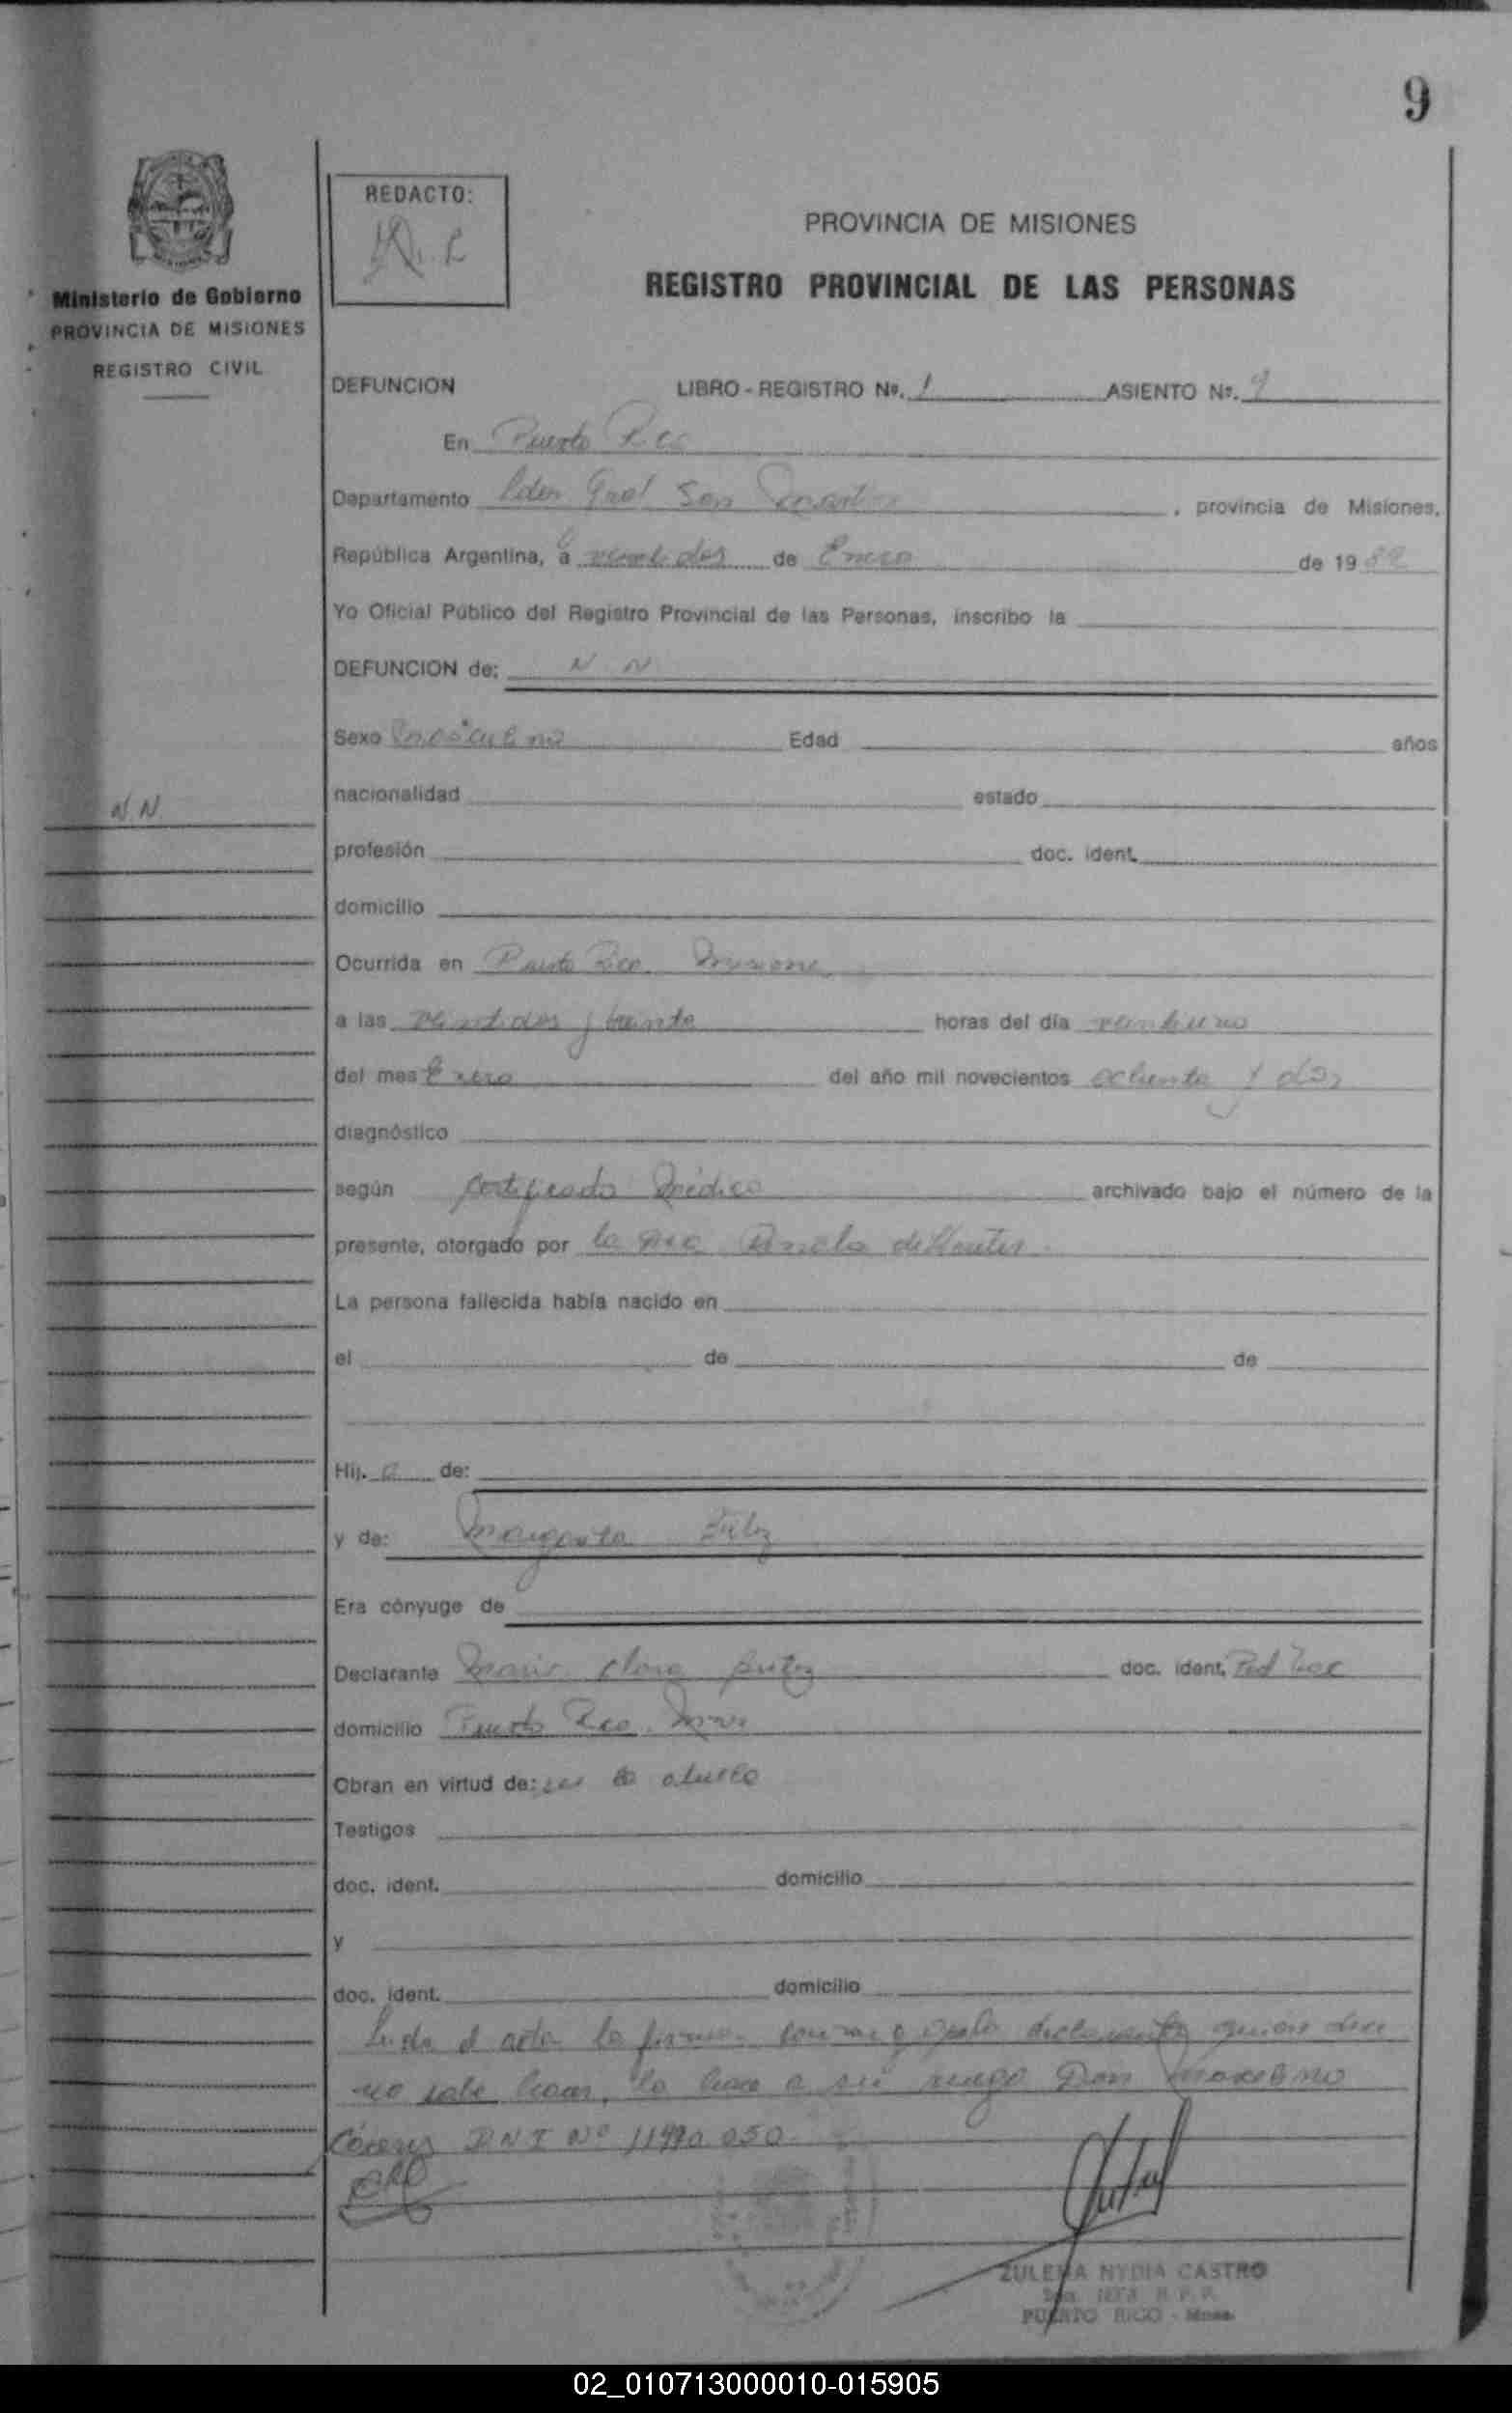 9
REDACTO:
PROVINCIA DE MISIONES
REGISTRO PROVINCIAL DE LAS PERSONAS
Ministerio de Gobierno
PROVINCIA DE MISIONES
REGISTRO CIVIL
DEFUNCION LIBRO - REGISTRO Nº. 1 ASIENTO Nº. 9
En Puerto Rico
Departamento Lider Gral San Martin , provincia de Misiones,
República Argentina, a veintidos de Enero de 1982
Yo Oficial Público del Registro Provincial de las Personas, inscribo la
DEFUNCION de: N N
Sexo Masculino Edad años
N.N.
nacionalidad estado
profesión doc. ident.
domicilio
Ocurrida en Puerto Rico Misiones
a las veintidos y treinta horas del día veintiuno
del mes Enero del año mil novecientos ochenta y dos
diagnóstico
según Certificado Médico archivado bajo el número de la
presente, otorgado por la
La persona fallecida había nacido en
el de de
Hij. o de:
y de: Margarita
Era cónyuge de
Declarante doc. ident.
domicilio Puerto Rico
Obran en virtud de: ser
Testigos
doc. ident. domicilio
y
doc. ident. domicilio
Leida el acta la firma conmigo declarante quien dice
no sabe hacer, lo hace a su ruego Don
DNI Nº 11490.050
ZULEMA NYDIA CASTRO
PUERTO RICO - Mnes.
02_010713000010-015905